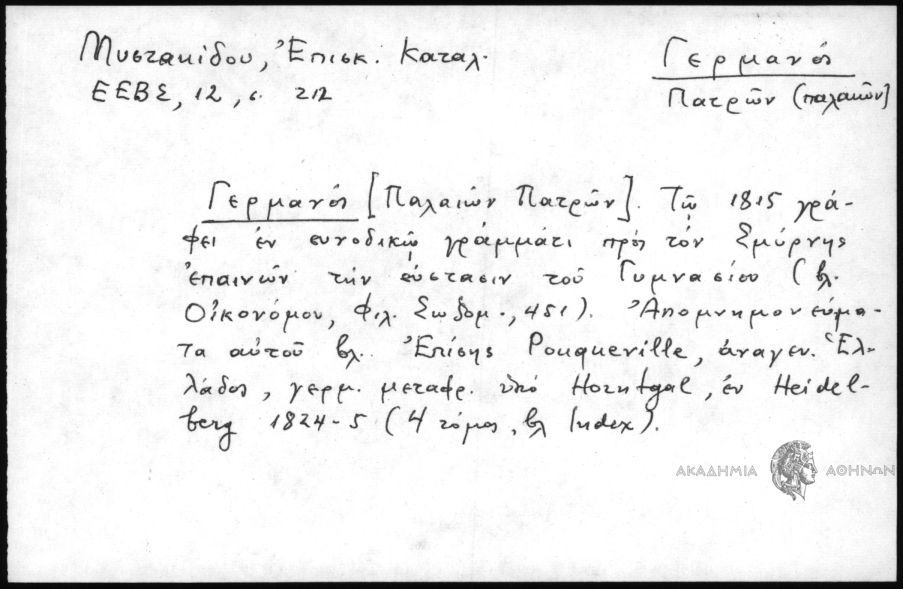 Μυστακίδου, Ἐπισκ. Καταλ.
ΕΕΒΣ, 12, σ. 212
Γερμανός
Πατρῶν (παλαιῶν)
Γερμανός [Παλαιῶν Πατρῶν]. Τῷ 1815 γρά-
φει ἐν συνοδικῷ γράμματι πρὸς τὸν Σμύρνης
ἐπαινῶν τὴν σύστασιν τοῦ Γυμνασίου (βλ.
Οἰκονόμου, Φιλ. Σωζομ., 451). Ἀπομνημονεύμα-
τα αὐτοῦ βλ. Ἐπίσης Pouqueville, ἀναγεν. Ἑλ-
λάδος, γερμ. μεταφρ. ὑπὸ Hornthal, ἐν Heidel-
berg 1824-5 (4 τόμος, βλ Index).
ΑΚΑΔΗΜΙΑ ΑΘΗΝΩΝ